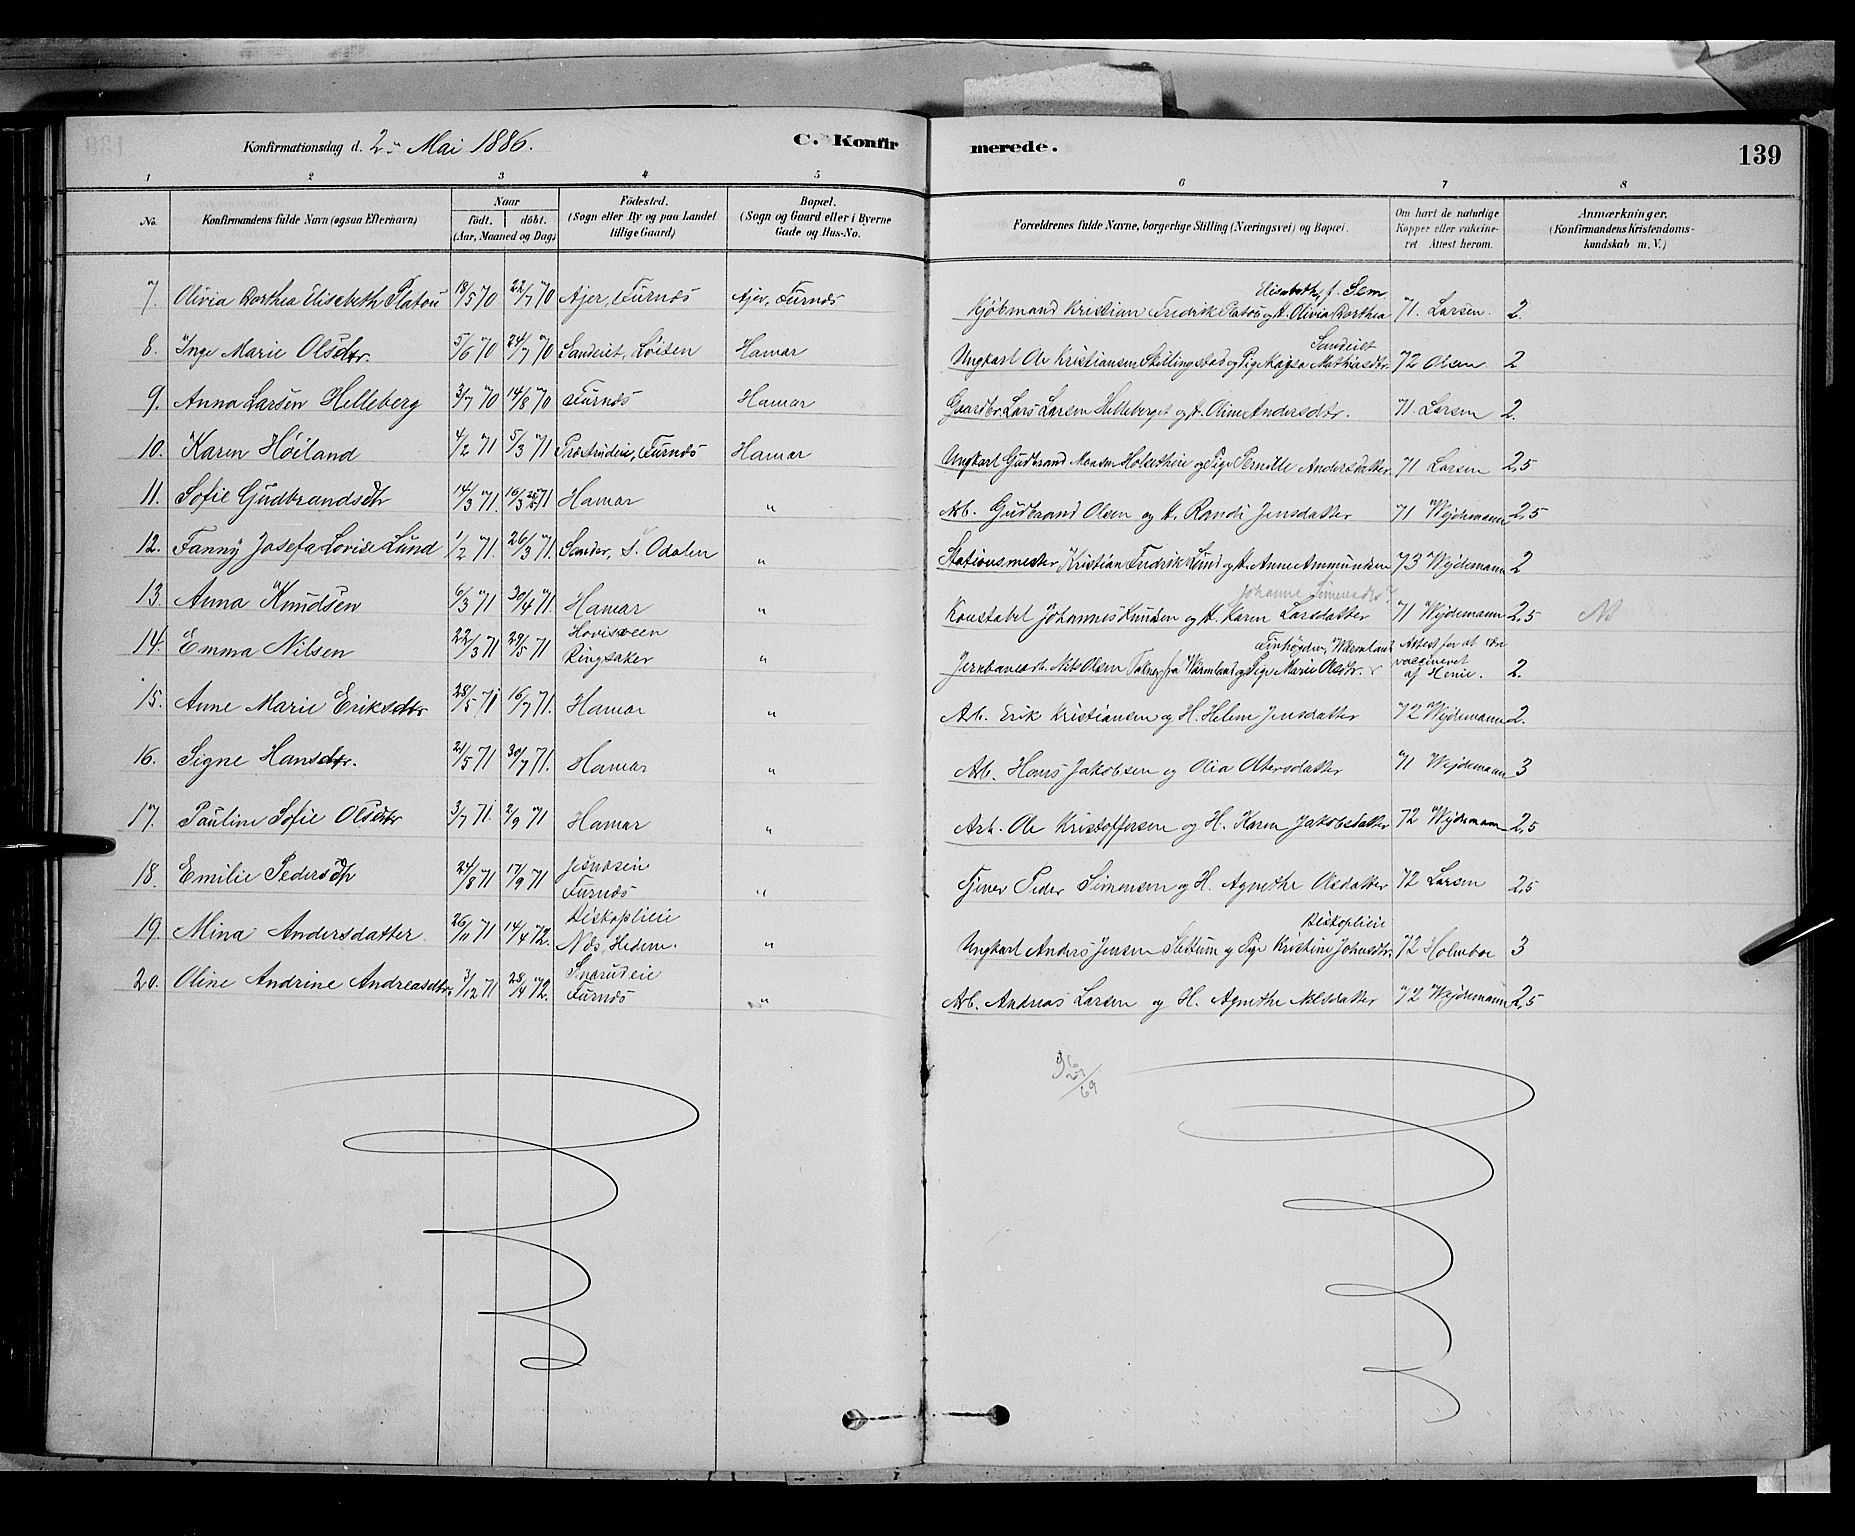 Konfirmationsdag d. 2. Mai 1886. C. Konfirmerede. 139
1 2 3 4 5 6 7 8
No. Konfirmandens fulde Navn (ogsaa Efternavn) Naar födt. döbt. (Aar, Maaned og Dag) Födested. (Sogn eller By og paa Landet tillige Gaard) Bopæl. (Sogn og Gaard eller i Byerne Gade og Hus-No. Forældrenes fulde Navne, borgerlige Stilling (Næringsvei) og Bopæl. Om havt de naturlige Kopper eller vakcineret Attest herom. Anmærkninger. (Konfirmandens Kristendomskundskab m. V.)
Elisabeth, f. Sem
7. Olivia Dorthea Elisabeth Platou 18/5 70 22/7 70 Ajer, Furnæs Ajer, Furnæs Kjöbmand Kristian Fredrik Platou og H. Olivia Dorthea 71. Larsen. 2.
Sandeiet
8. Inge Marie Olsdtr. 5/6 70 24/7 70 Sandeiet, Löiten Hamar Ungkarl Ole Kristiansen Skillingstad og Pige Kajsa Mathiasdtr. 72 Olsen 2
9. Anna Larsen Helleberg 3/7 70 14/8 70 Furnæs Hamar Gaardbr. Lars Larsen Helleberget og H. Oline Andersdtr. 71. Larsen 2.
10. Karen Höiland 4/2 71 5/3 71 Furnæs Hamar Ungkarl Gudbrand og Pige Pernille Andersdatter 71 Larsen 2,5
11. Sofie Gudbrandsdtr 14/3 71. 16/3 71 Hamar " Arb. Gudbrand Olsen og H. Randi Jensdatter 71 Wejdemann 2,5
12. Fanny Josefa Lovise Lund 1/2 71. 26/3 71. Sander, S. Odalen " Stationsmester Kristian Fredrik Lund og H. Anne Ammundsen 73 Wejdemann 2
Johanne Simensdtr
13. Anna Knudsen 6/3 71 30/4 71. Hamar " Konstabel Johannes Knudsen og H. Karen Larsdatter 71 Wejdemann 2,5
14. Emma Nilsen 22/3 71 29/5 71 Ringsaker " Jernbanearb. Nils Olsen fra Wärmland og Pige Marie Olsdtr. Wärmland Attest for at være vaccineret af Henie. 2.
15. Anne Marie Eriksdtr 28/5 71 16/7 71. Hamar " Arb. Erik Kristiansen og H. Helene Jensdatter 72 Wejdemann 2.
16. Signe Hansdtr. 21/5 71 30/7 71. Hamar " Arb. Hans Jakobsen og Olia Olersdatter 71 Wejdemann 3
17. Pauline Sofie Olsdtr 3/7 71. 2/9 71 Hamar " Arb. Ole Kristoffersen og H. Karen Jakobsdatter 72 Wejdemann 2,5
18. Emilie Pedersdtr 24/8 71 17/9 71 Jesnæseie Furnæs " Tjener Peder Simensen og H. Agnethe Olsdatter 72 Larsen 2,5
Biskoplieie
19. Mina Andersdatter 26/11 71 14/4 72. Biskoplieie Næs, Hedem. " Ungkarl Anders Jensen Slettum og Pige Kristine Johnsdtr. 72 Holmboe 3
20. Oline Andrine Andreasdtr. 3/12 71 28/4 72. Snarudeie Furnæs " Arb. Andreas Larsen og H. Agnethe Nilsdatter 72 Wejdemann 2,5